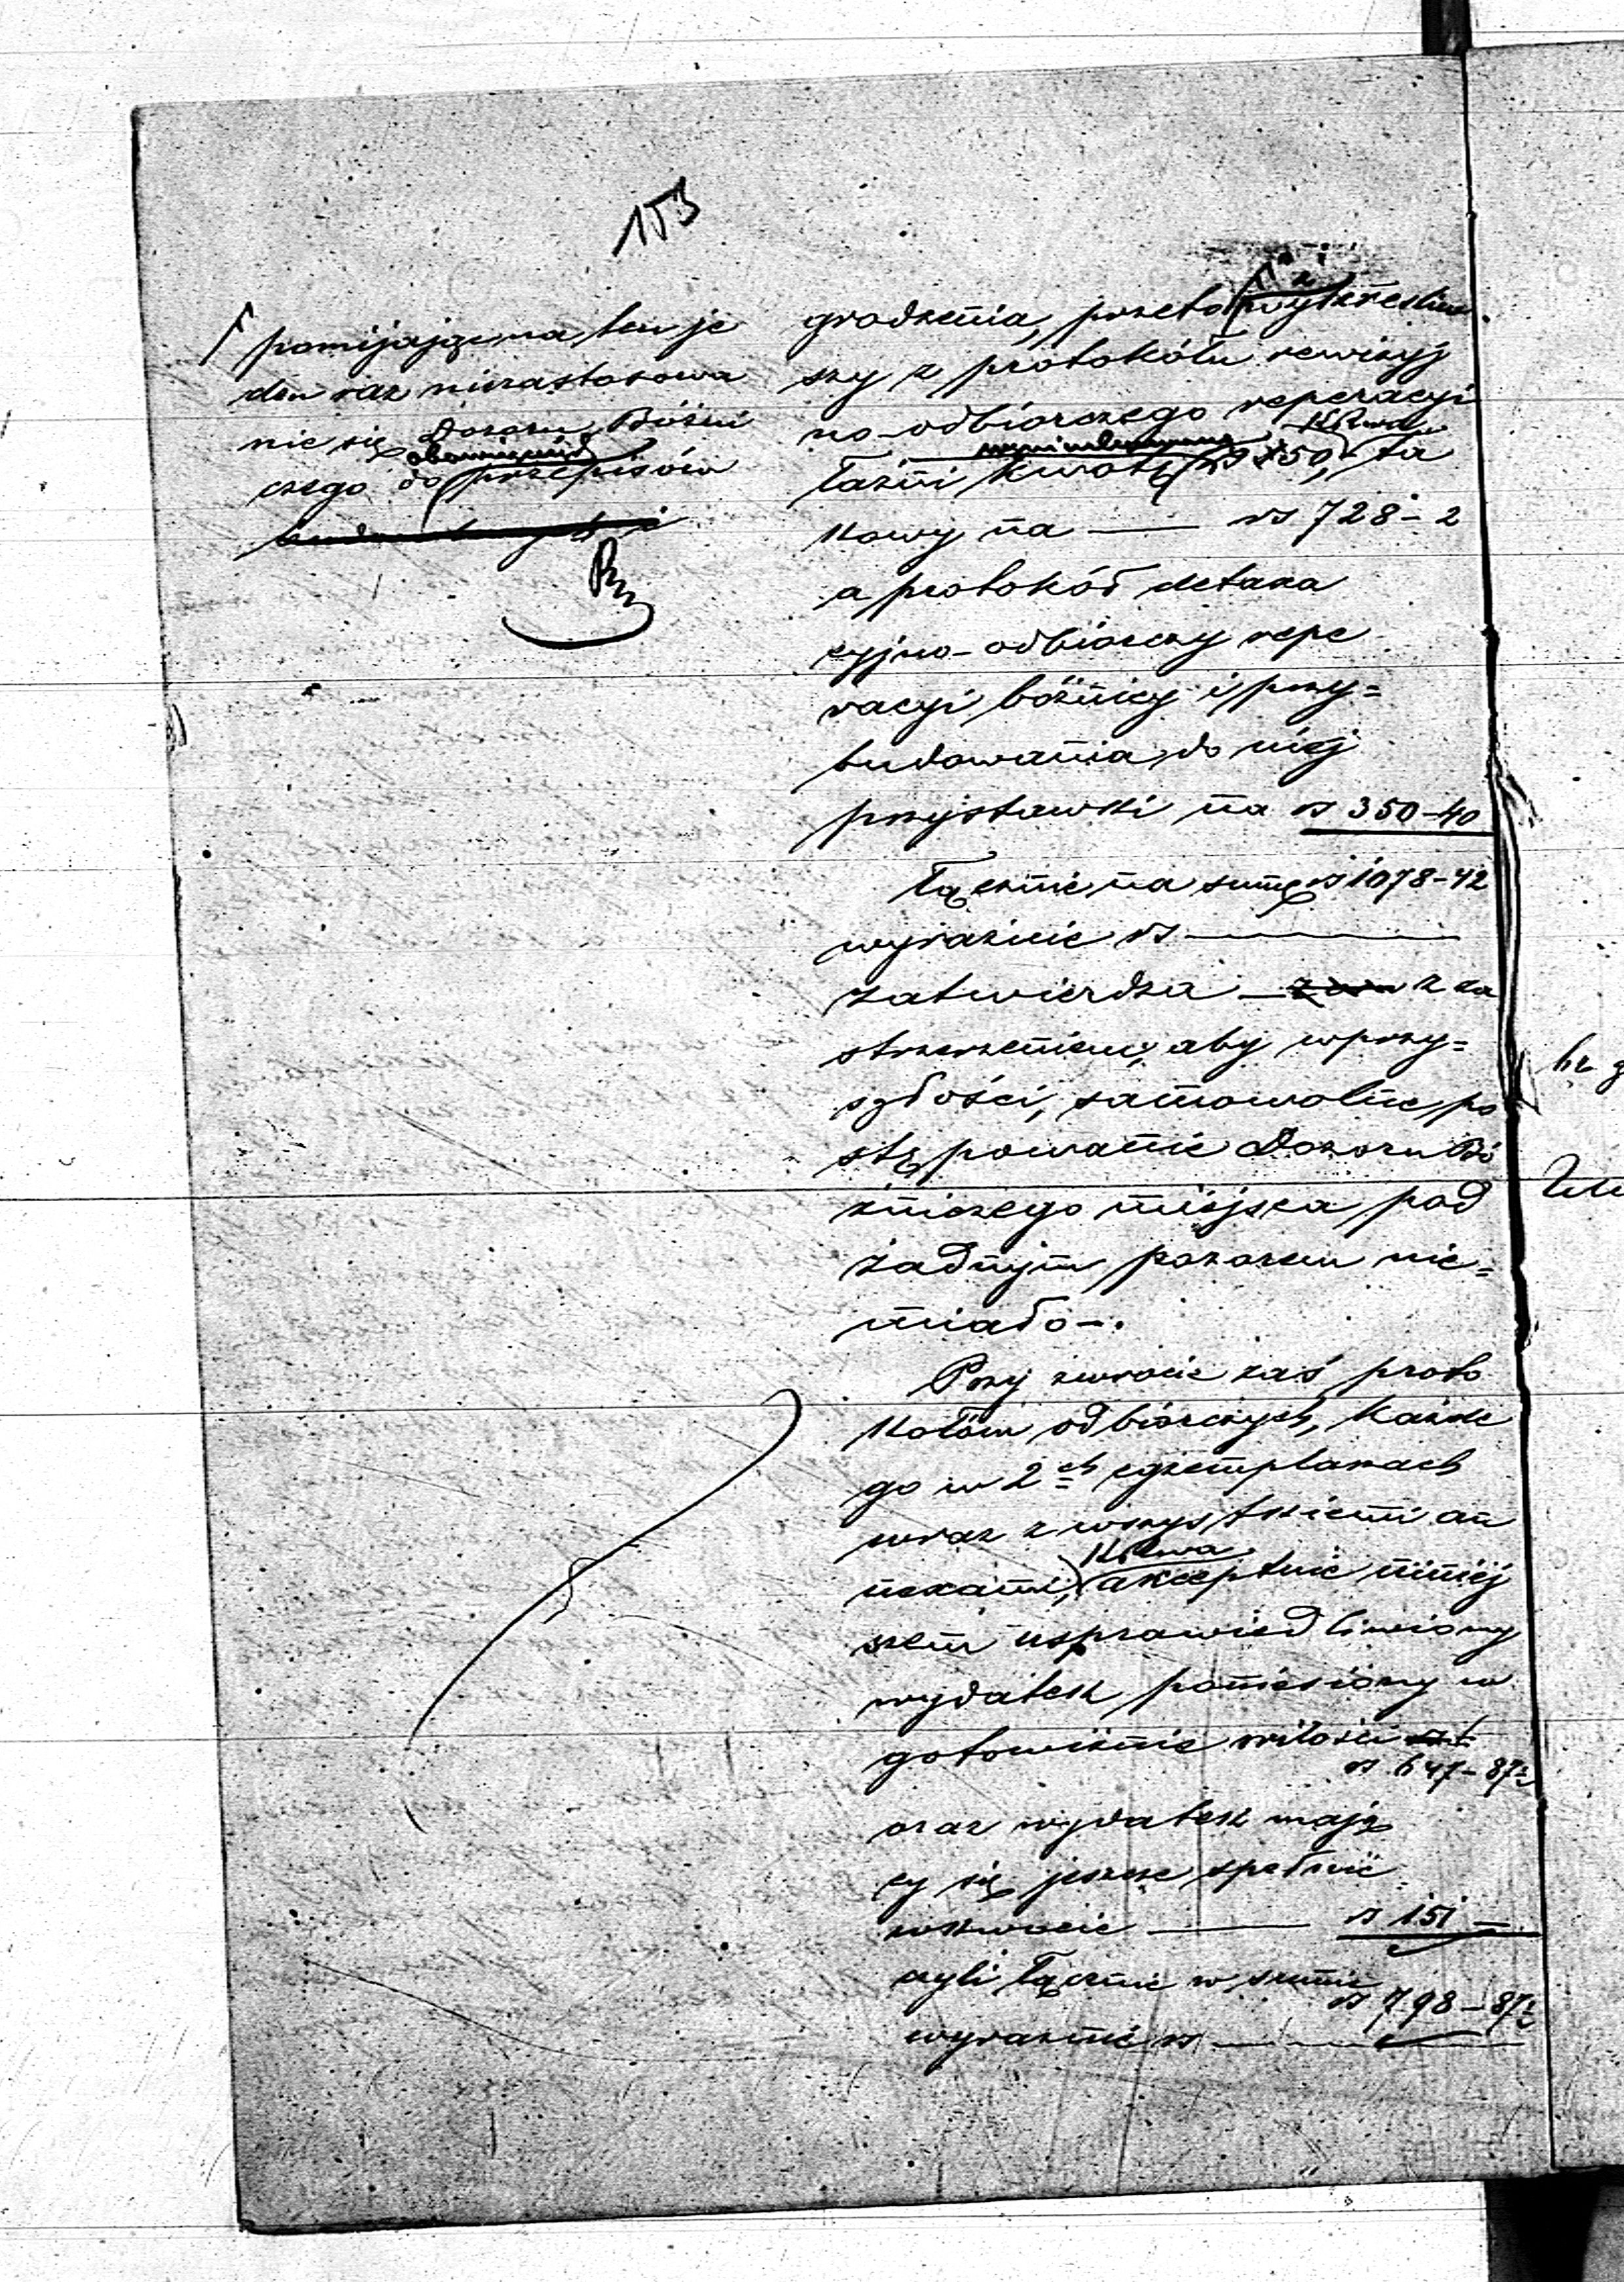 153
pomijając na ten je
den raz niezastosowa
nie się Dozoru Bóżni
czego do przepisów
obowiązują
grodzenia, przeto wykreśliw
szy z protokółu rewizyj
no-odbiorczego reperacyi
łaźni kwotę rs 150, ta
kowy na — rs 728-2
a protokół detaxa
cyjno-odbiorczy repe
racyi bóżnicy i przy=
budowania do niej
przystawki na rs 350-40
łącznie na sumę rs 1078-42
wyraźnie rs —
zatwierdza — z za
strzeżeniem, aby w przy=
szłości, samowolne po
stępowanie Dozoru Bó
źniczego miejsca pod
żadnym pozorem nie=
miało-.
Przy zwrocie zaś proto
kołów odbiorczych, każde
go w 2ch egzemplarzach
wraz z wszystkiemi an
nexami, akceptuie niniej
szem usprawiedliwiony
wydatek poniesiony w
gotowiźnie w ilości
rs 647-87½
oraz wydatek mają
cy się jeszcze spełnić
w kwocie — rs 151 —
czyli łącznie w sumie
rs 798-87½
wyraźnie rs —